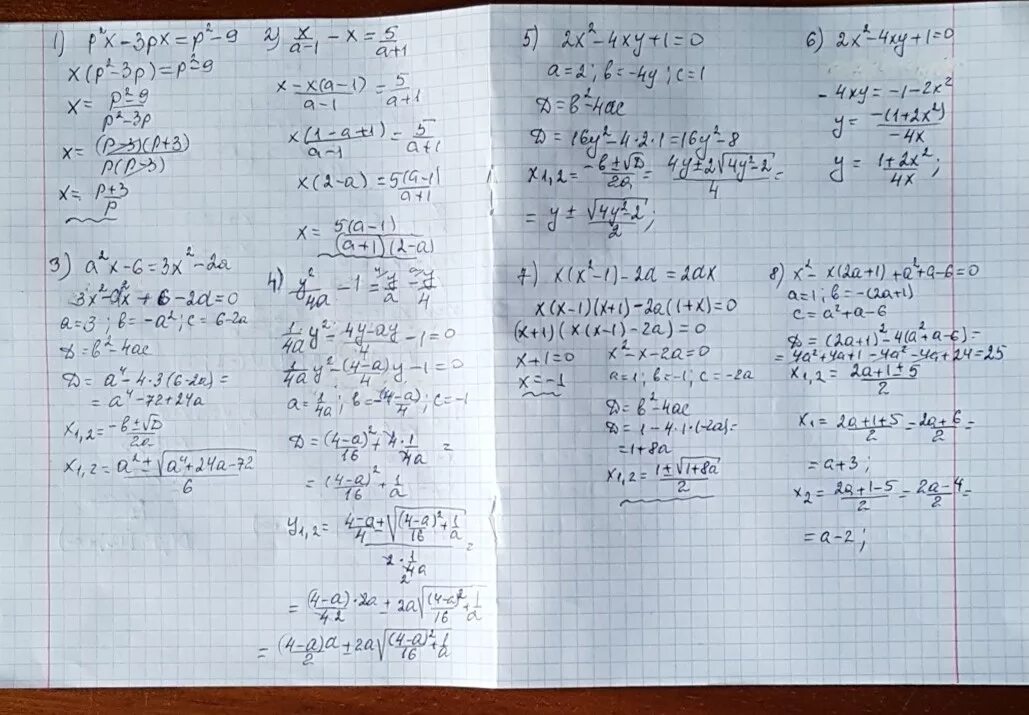 1) p²x - 3px = p² - 9
x(p² - 3p) = p² - 9
x = (p² - 9)/(p² - 3p)
x = (p-3)(p+3)/(p(p-3))
x = (p+3)/p
2) x/(a-1) - x = 5/(a+1)
(x - x(a-1))/(a-1) = 5/(a+1)
x(1-a+1)/(a-1) = 5/(a+1)
x(2-a) = 5(a-1)/(a+1)
x = 5(a-1)/((a+1)(2-a))
3) a²x - 6 = 3x² - 2a
3x² - a²x + 6 - 2a = 0
a = 3; b = -a²; c = 6-2a
D = b² - 4ac
D = a⁴ - 4·3(6-2a) =
= a⁴ - 72 + 24a
x1,2 = (-b ± √D)/2a
x1,2 = (a² ± √(a⁴ + 24a - 72))/6
4) y²/4a - 1 = y/a - y/4
1/4a y² - (4y - ay)/4 - 1 = 0
1/4a y² - (4-a)/4 y - 1 = 0
a = 1/4a; b = -(4-a)/4; c = -1
D = (4-a)²/16 + 4·1/4a =
= (4-a)²/16 + 1/a
y1,2 = ((4-a)/4 ± √((4-a)²/16 + 1/a))/(2·1/4a) =
= (4-a)·2a/4 ± 2a√((4-a)²/16 + 1/a)
= (4-a)a/2 ± 2a√((4-a)²/16 + 1/a)
5) 2x² - 4xy + 1 = 0
a = 2; b = -4y; c = 1
D = b² - 4ac
D = 16y² - 4·2·1 = 16y² - 8
x1,2 = (-b ± √D)/2a = (4y ± 2√(4y² - 2))/4 =
= y ± √(4y² - 2)/2;
6) 2x² - 4xy + 1 = 0
- 4xy = -1 - 2x²
y = -(1 + 2x²)/(-4x)
y = (1 + 2x²)/4x;
7) x(x² - 1) - 2a = 2ax
x(x-1)(x+1) - 2a(1+x) = 0
(x+1)(x(x-1) - 2a) = 0
x + 1 = 0
x = -1
x² - x - 2a = 0
a = 1; b = -1; c = -2a
D = b² - 4ac
D = 1 - 4·1·(-2a) =
= 1 + 8a
x1,2 = (1 ± √(1 + 8a))/2
8) x² - x(2a+1) + a² + a - 6 = 0
a = 1; b = -(2a+1)
c = a² + a - 6
D = (2a+1)² - 4(a² + a - 6) =
= 4a² + 4a + 1 - 4a² - 4a + 24 = 25
x1,2 = (2a + 1 ± 5)/2
x1 = (2a+1+5)/2 = (2a+6)/2 =
= a + 3;
x2 = (2a+1-5)/2 = (2a-4)/2 =
= a - 2;